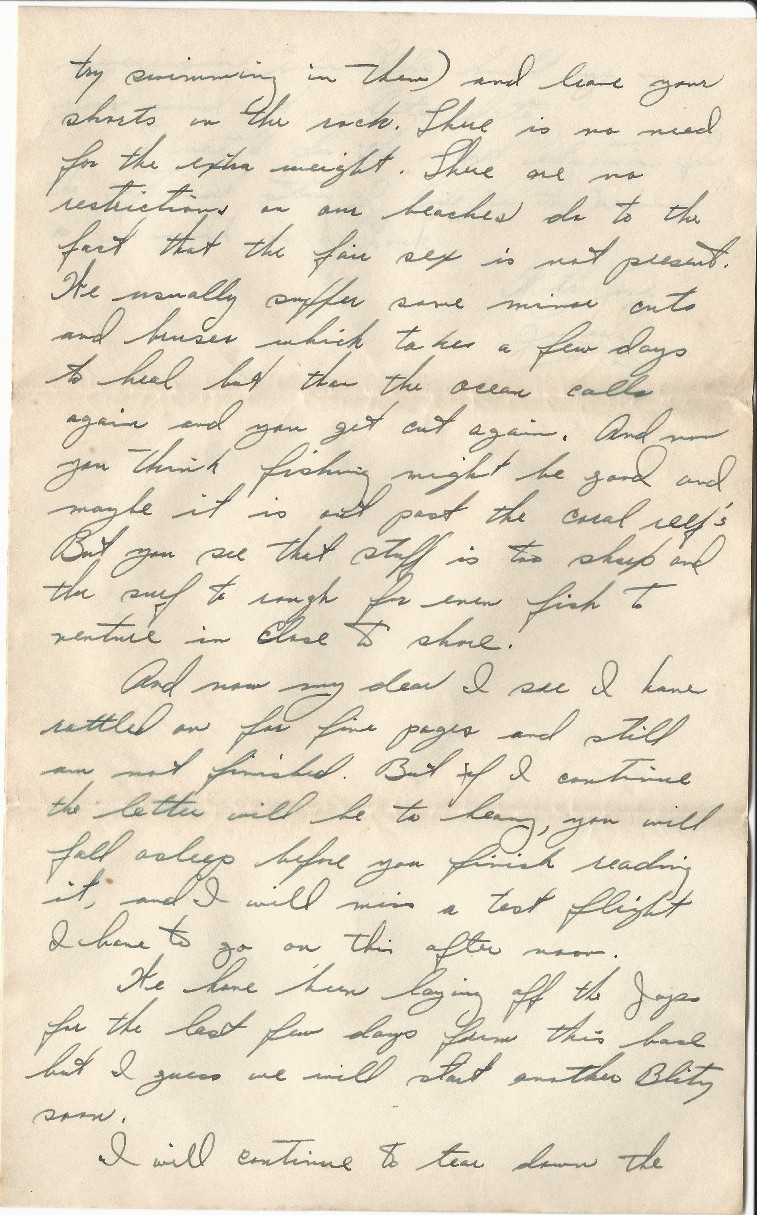 try swimming in them) and leave your
shorts on the rock. There is no need
for the extra weight. There are no
restrictions on our beaches do to the
fact that the fair sex is not present.
We usually suffer some minor cuts
and bruses which takes a few days
to heal but than the ocean calls
again and you get cut again. And now
you think fishing might be good and
maybe it is out past the coral reef's
But you see that stuff is too sharp and
the surf to rough for even fish to
venture in close to shore.
And now my dear I see I have
rattled on for five pages and still
am not finished. But if I continue
the letter will be to heavy, you will
fall asleep before you finish reading
it, and I will miss a test flight
I have to go on this after noon.
We have been laying off the Japs
for the last few days from this base
but I guess we will start another Blitz
soon.
I will continue to tear down the